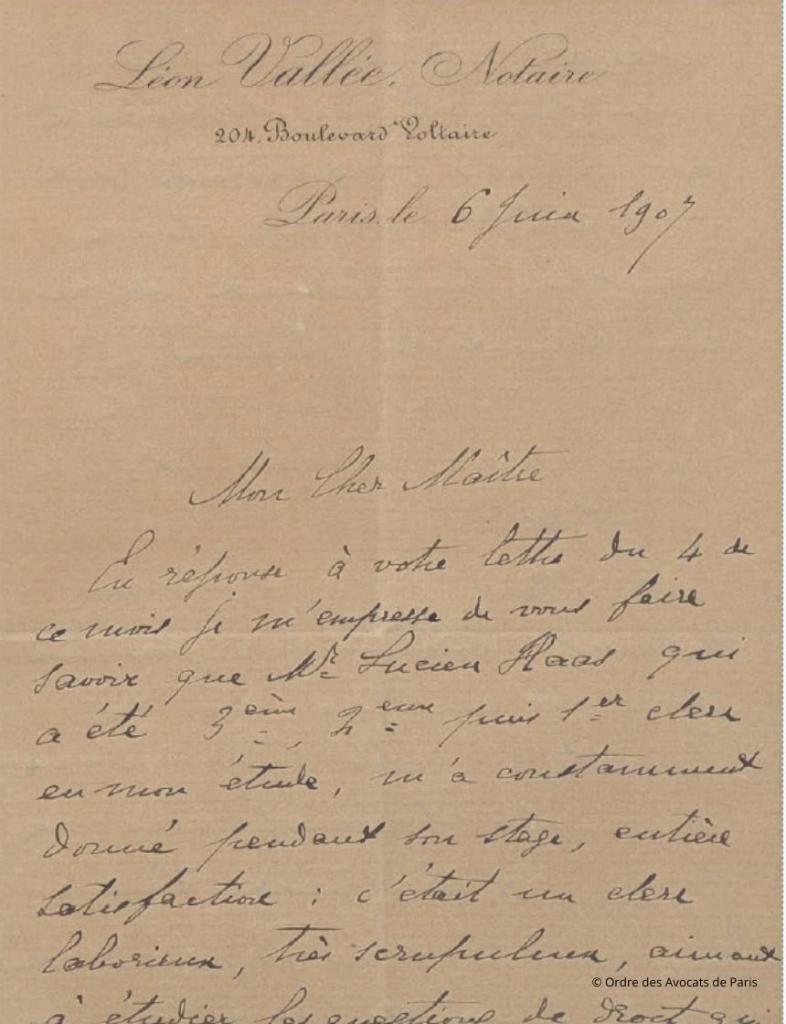 Léon Vallée. Notaire
204. Boulevard Voltaire
Paris, le 6 Juin 1907
Mon Cher Maître
En réponse à votre lettre du 4 de
ce mois je m'empresse de vous faire
savoir que Mr Lucien Haas qui
a été 3ème, 2eme puis 1er clerc
en mon étude, m'a constamment
donné pendant son stage, entière
satisfaction : c'était un clerc
laborieux, très scrupuleux, aimant
à étudier les questions de droit qui
© Ordre des Avocats de Paris